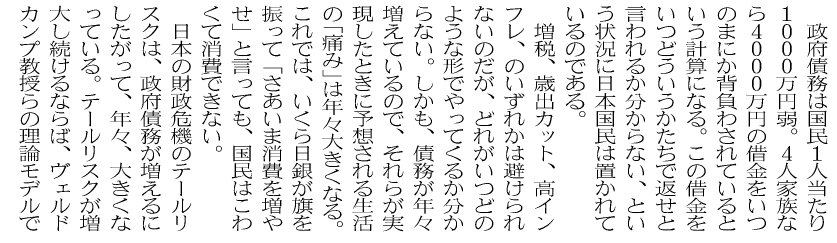 政府債務は国民１人当たり
１０００万円弱。４人家族な
ら４０００万円の借金をいつ
のまにか背負わされていると
いう計算になる。この借金を
いつどういうかたちで返せと
言われるか分からない、とい
う状況に日本国民は置かれて
いるのである。
　増税、歳出カット、高イン
フレ、のいずれかは避けられ
ないのだが、どれがいつどの
ような形でやってくるか分か
らない。しかも、債務が年々
増えているので、それらが実
現したときに予想される生活
の「痛み」は年々大きくなる。
これでは、いくら日銀が旗を
振って「さあいま消費を増や
せ」と言っても、国民はこわ
くて消費できない。
　日本の財政危機のテールリ
スクは、政府債務が増えるに
したがって、年々、大きくな
っている。テールリスクが増
大し続けるならば、ヴェルド
カンプ教授らの理論モデルで